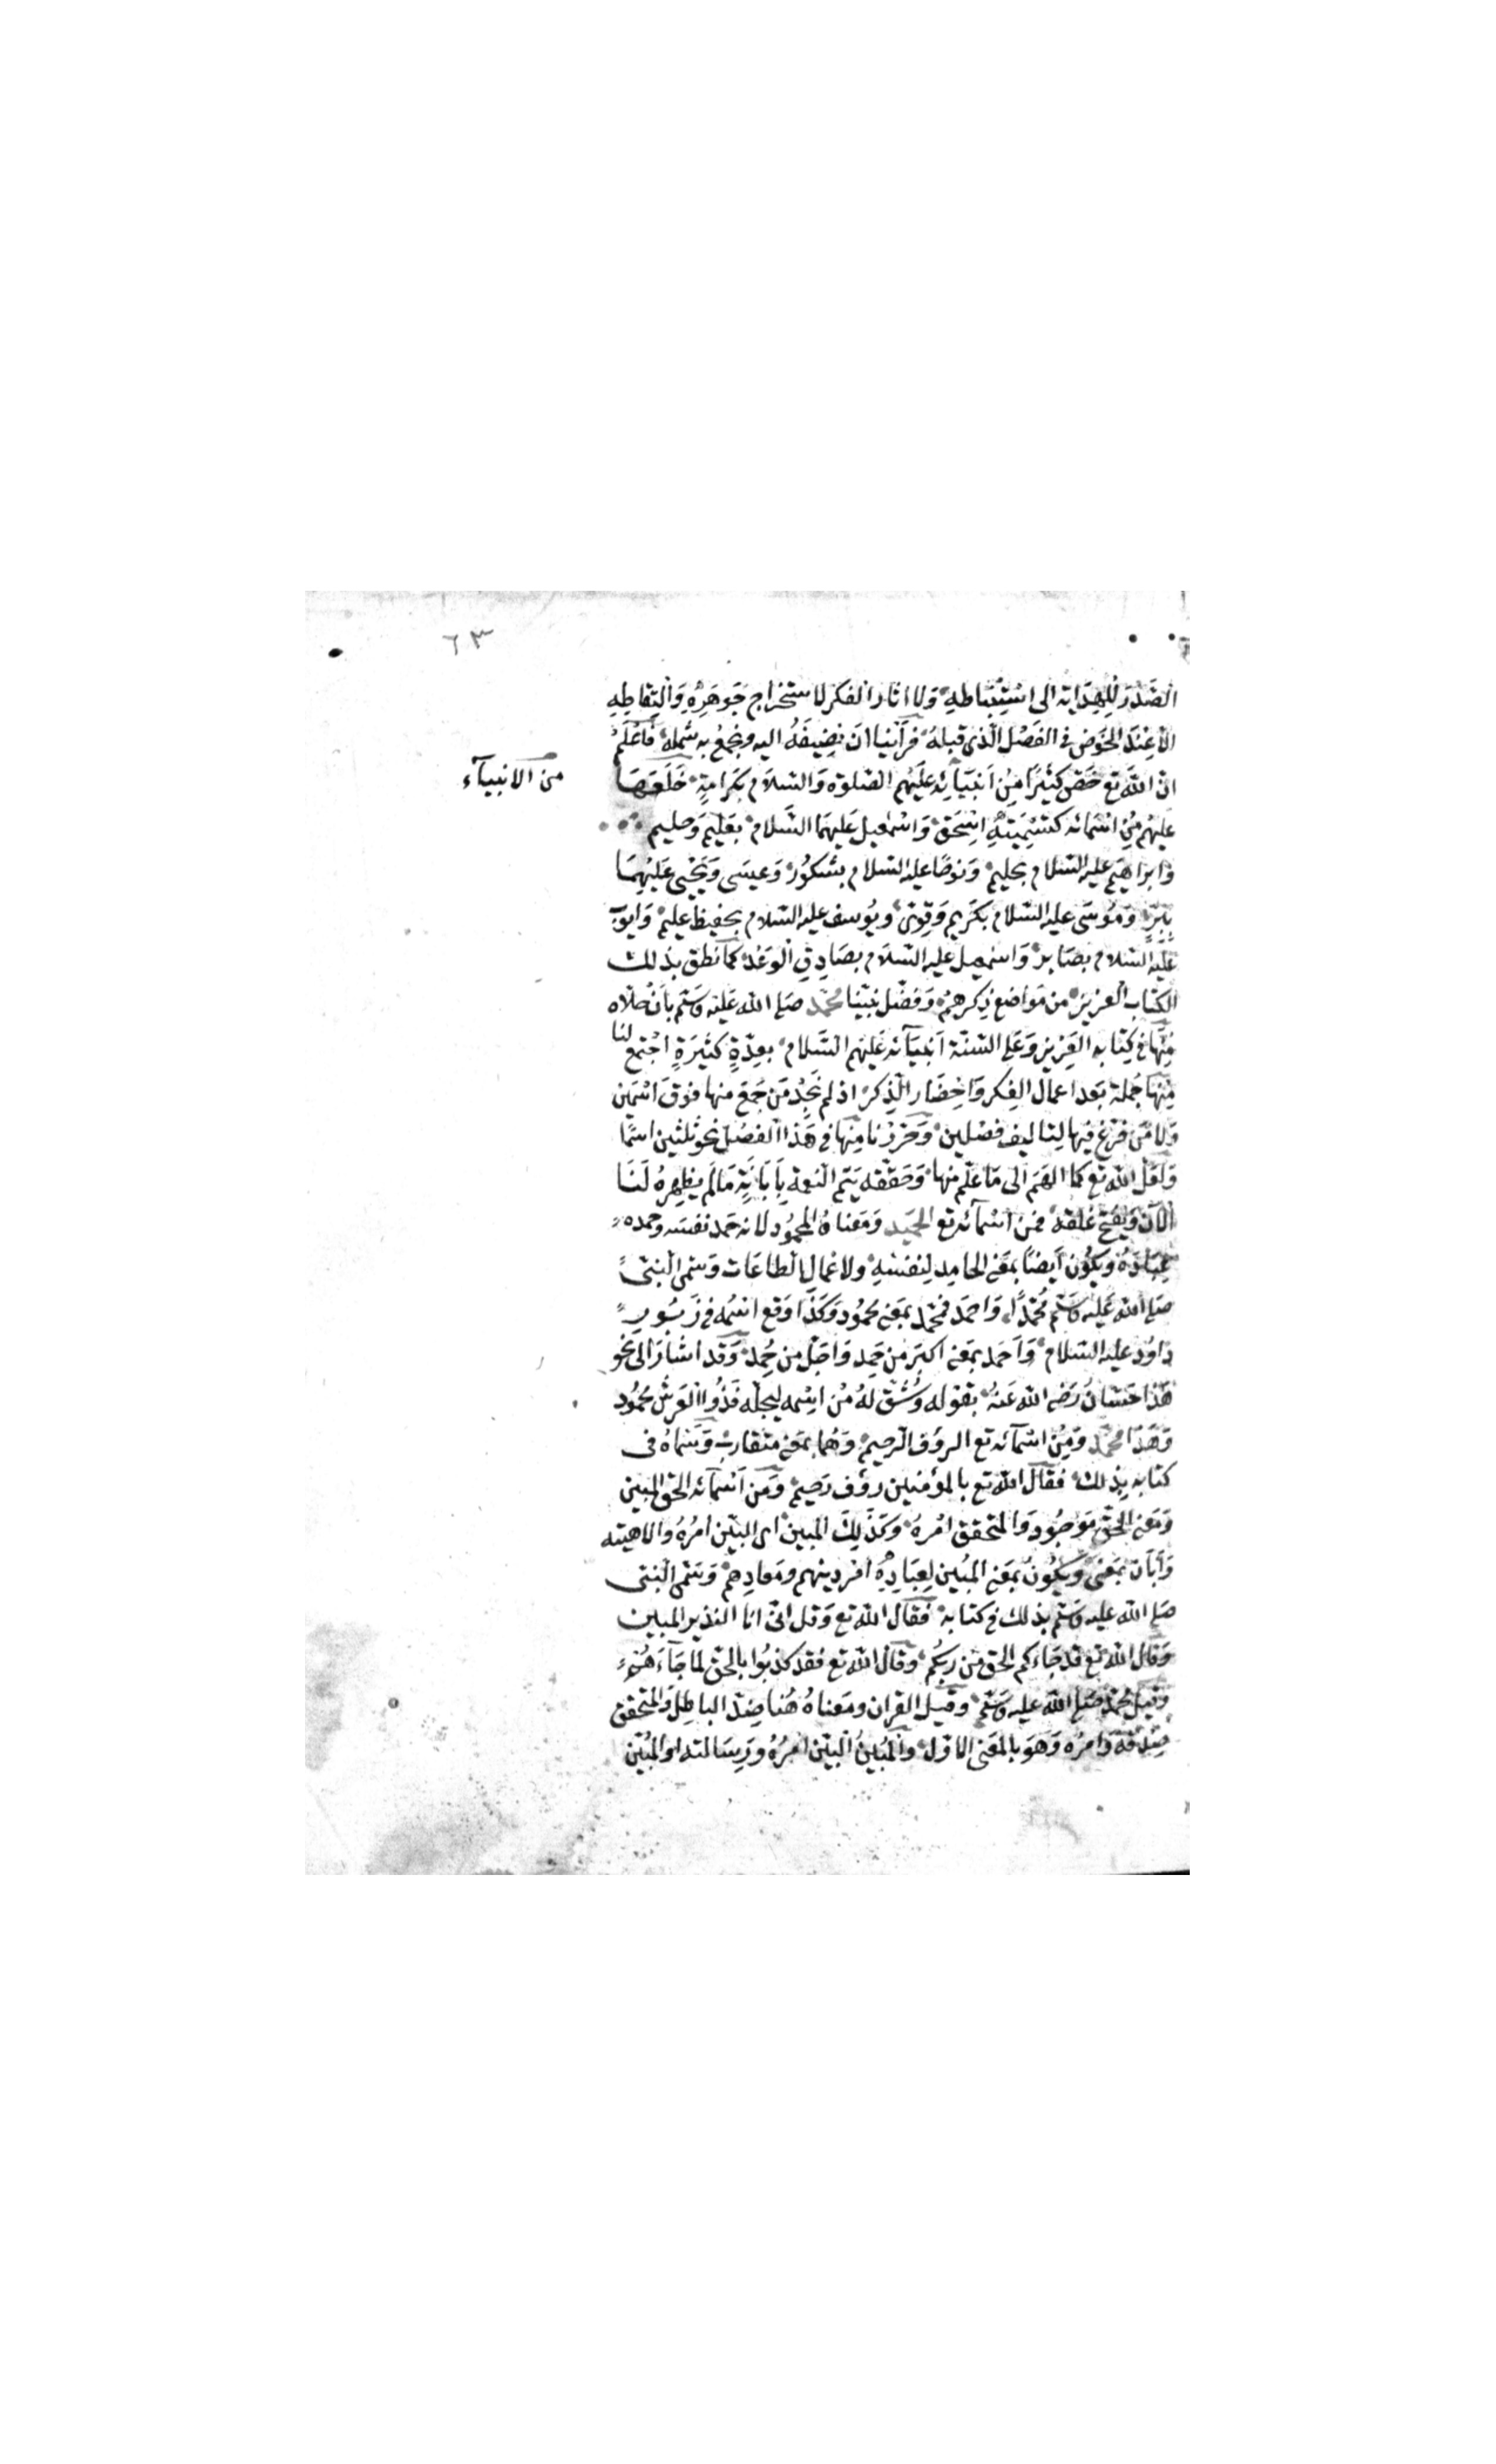 ٦٣
الصَّدْرَ لِلْهِدَايَة الى اسْتِنْبَاطِهِ وَلا انار الفكر لاستخراج جَوهَرِهِ وَالْتِقاطِهِ
الّا عِنْدَ الخَوْضِ فى الفَصْل الّذى قبلهُ فرأينا ان نضِيفَهُ اليه ونجمعُ به شمله فَاعْلَمْ
انّ اللّه تع خَصّ كثيرًا مِنْ اَنبيَائِه عليهم الصّلوة وَالسّلام بكرامَةٍ خَلَعَهَا
من الانبيآء
عَلَيْهِم مِنْ اسْمائه كتَسْمِيَتِهِ اسْحَقَ وَاسْمعيل عَلَيهمَا السَّلام بعَليم وَحليم
وابراهيم عليه السّلام بحليم وَنوحًا عليه السّلام بشكُور وَعيسَى وَيَحْيى عَليْهِمَا
بِبَرٍّ وَمُوسَى عليه السّلام بكَريم وَقوِىّ وَيُوسف عليه السّلام بحفيظ عليم وَايّوبَ
عَلَيْه السّلام بصَابر وَاسْمعيل عليه السّلام بصَادِقِ الوَعْد كمَا نطق بذلك
الكتاب العزيز من مَواضع ذِكرهِمْ وَفضّل نبيّنا محمّد صَلى اللّه عَليْه وَسَلم باَنْ حَلّاه
مِنْهَا فى كِتَابه العَزِيز وَعَلى السنة انبيَآئه عَليهم السَّلام بعِدّةٍ كثيَرةٍ اجْتمعَ لنا
مِنْهَا جُملة بَعد اعمال الفِكر وَاحْضَار الذّكر اذ لم نَجِدْ مَن جَمَعَ منها فوْقَ اسْمَين
وَلا مَن فَرَغَ فيها لتاليف فصْلين وَحَرّرْنا مِنْهَا فى هَذا الفصْل نحوَ ثلثين اسْمًا
وَلعَلّ اللّه تع كما الهَمَ الى مَا عَلّم منها وَحَقّقه يتمّ النّعمة بِاِبَانَةِ مَا لَم يظهِرهُ لَنَا
الآن وَيفتح غلقه فمن اسْمآئه تع الحَمِيد وَمَعناهُ المحمُود لانه حَمد نفسَه وحمده
عِبَادُهُ وَيكُون اَيضًا بمَعْنى الحامِد لِنفسِهِ وَلاعْمالِ الطاعَات وَسَمى النّبىّ
صَلى اللّه عَليه وَسَلم مُحَمّدًا وَاحمَد فمحّمد بمَعنى محمُود وَكَذا وَقع اسْمُه فى زَبُور
دَاوُد عليه السّلام وَاَحمَد بمَعنى اكبَر مَن حَمِد وَاجَلّ من حُمِد وَقد اشارَ الى نحْو
هَذا حَسّانُ رَضى اللّه عَنْهُ بقوله وَشُقّ لهُ مِنْ اسْمِه ليجلّه فَذُوا العَرش محمُود
وَهَذا محمّد وَمِنْ اسْمآئه تع الرؤف الرّحيم وَهُمَا بمَعنى مُتقارب وَسَمَاهُ فى
كتابه بذلك فقال اللّه تع بالمؤمنين رؤف رَحيم وَمن اَسْمآئه الحَقّ المبين
وَمَعنى الحقّ مَوْجُود وَالمتحقق امْرهُ وَكَذلِك المبين اى البيّن امْرُهُ والاهيته
وَاَبَانَ بمَعنى وَيكُونُ بمَعنى المُبين لِعِبَادِهِ امْر دينهم وَمعادِهمْ وَسَمّى النّبى
صَلى اللّه عليه وَسَلم بذلك فى كتابه فقال اللّه تع وَقل انّى انا النذير المبين
وَقال اللّه تع قد جَاءَكم الحق من رَبكُم وقال اللّه تع فقد كذبُوا بالحق لمّا جَآءَهُمْ
وَقيل محمّد صَلى اللّه عليه وَسَلم وقيل القران وَمعناهُ هُنا ضِدّ الباطِل وَالمتحقق
صِدْقه وَامْرُه وَهوَ بالمَعنى الاوّل وَالمُبينُ البَيّن امْرُهُ وَرِسَالته او المُبَيّن